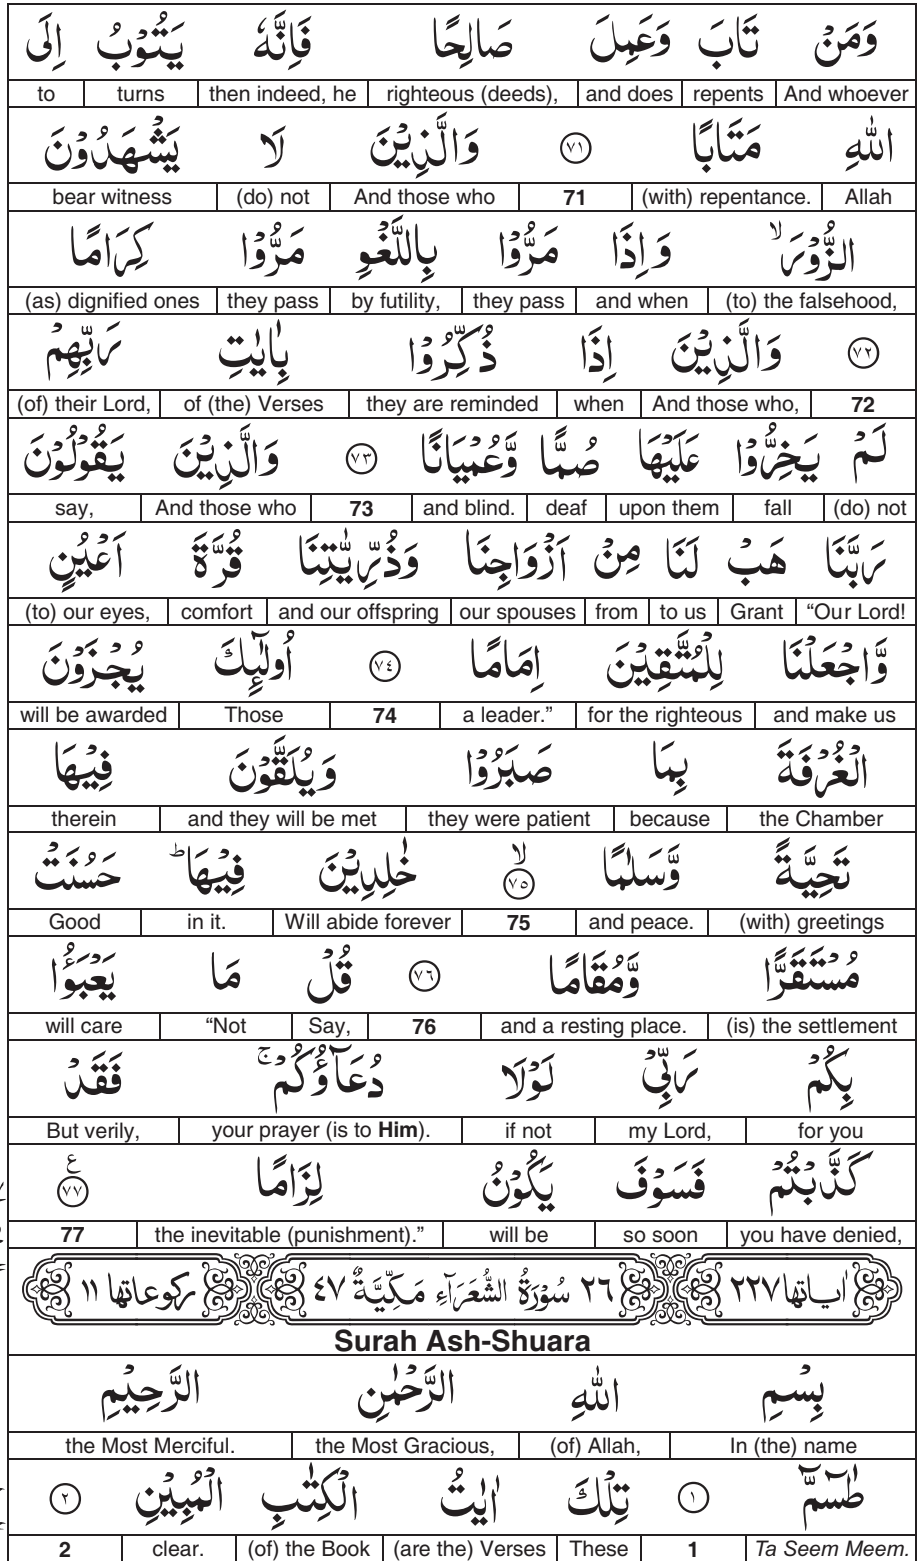 وَمَنۡ تَابَ وَعَمِلَ صَالِحًا فَاِنَّهٗ يَتُوۡبُ اِلَى
And whoever repents and does righteous (deeds), then indeed, he turns to
اللّٰهِ مَتَابًا ﴿۷۱﴾ وَالَّذِيۡنَ لَا يَشۡهَدُوۡنَ
Allah (with) repentance. 71 And those who (do) not bear witness
الزُّوۡرَۙ وَاِذَا مَرُّوۡا بِاللَّغۡوِ مَرُّوۡا كِرَامًا
(to) the falsehood, and when they pass by futility, they pass (as) dignified ones
﴿۷۲﴾ وَالَّذِيۡنَ اِذَا ذُكِّرُوۡا بِاٰيٰتِ رَبِّهِمۡ
72 And those who, when they are reminded of (the) Verses (of) their Lord,
لَمۡ يَخِرُّوۡا عَلَيۡهَا صُمًّا وَّعُمۡيَانًا ﴿۷۳﴾ وَالَّذِيۡنَ يَقُوۡلُوۡنَ
(do) not fall upon them deaf and blind. 73 And those who say,
رَبَّنَا هَبۡ لَنَا مِنۡ اَزۡوَاجِنَا وَذُرِّيّٰتِنَا قُرَّةَ اَعۡيُنٍ
“Our Lord! Grant to us from our spouses and our offspring comfort (to) our eyes,
وَّاجۡعَلۡنَا لِلۡمُتَّقِيۡنَ اِمَامًا ﴿۷۴﴾ اُولٰٓٮِٕكَ يُجۡزَوۡنَ
and make us for the righteous a leader.” 74 Those will be awarded
الۡغُرۡفَةَ بِمَا صَبَرُوۡا وَيُلَقَّوۡنَ فِيۡهَا
the Chamber because they were patient and they will be met therein
تَحِيَّةً وَّسَلٰمًا ۙ﴿۷۵﴾ خٰلِدِيۡنَ فِيۡهَا ؕ حَسُنَتۡ
(with) greetings and peace. 75 Will abide forever in it. Good
مُسۡتَقَرًّا وَّمُقَامًا ﴿۷۶﴾ قُلۡ مَا يَعۡبَؤُا
(is) the settlement and a resting place. 76 Say, “Not will care
بِكُمۡ رَبِّىۡ لَوۡلَا دُعَآؤُكُمۡ ۚ فَقَدۡ
for you my Lord, if not your prayer (is to Him). But verily,
كَذَّبۡتُمۡ فَسَوۡفَ يَكُوۡنُ لِزَامًا ﴿۷۷﴾ ع
you have denied, so soon will be the inevitable (punishment).” 77
اٰياتها ۲۲۷ ۲۶ سُوۡرَةُ الشُّعَرَآءِ مَكِّيَّةٌ ۴۷ ركوعاتها ۱۱
Surah Ash-Shuara
بِسۡمِ اللّٰهِ الرَّحۡمٰنِ الرَّحِيۡمِ
In (the) name (of) Allah, the Most Gracious, the Most Merciful.
طٰسٓمّٓ ﴿۱﴾ تِلۡكَ اٰيٰتُ الۡكِتٰبِ الۡمُبِيۡنِ ﴿۲﴾
Ta Seem Meem. 1 These (are the) Verses (of) the Book clear. 2